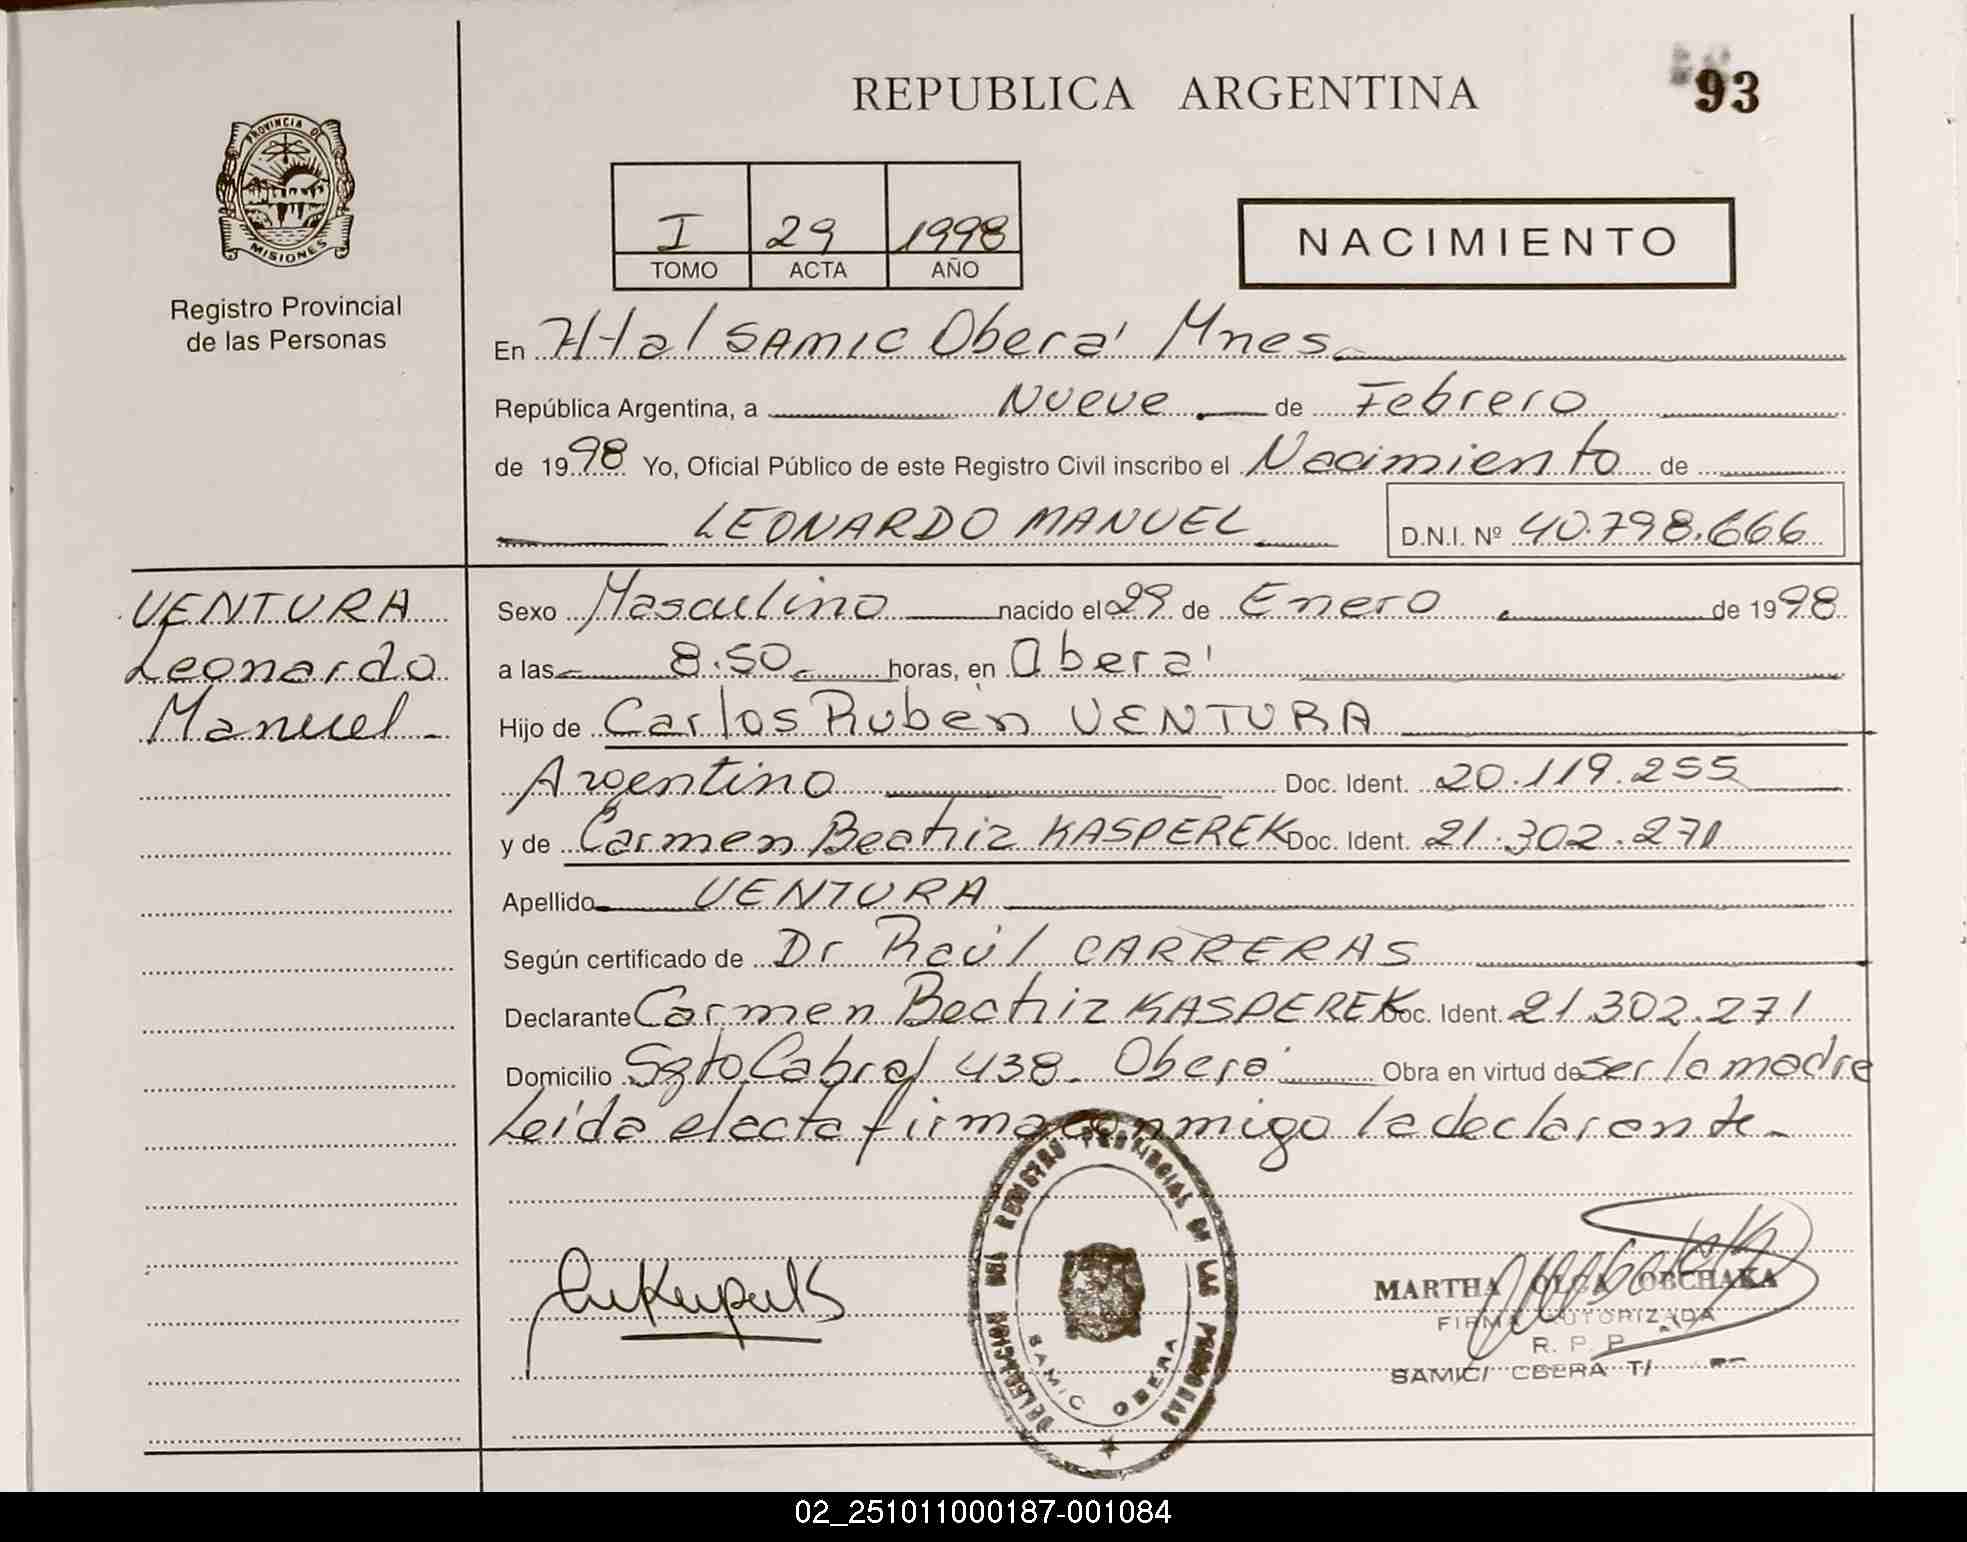 REPUBLICA ARGENTINA
93
PROVINCIA DE
MISIONES
Registro Provincial
de las Personas
I 29 1998
TOMO ACTA AÑO
NACIMIENTO
En Htal SAMIC Oberá Mnes.
República Argentina, a Nueve de Febrero
de 1998 Yo, Oficial Público de este Registro Civil inscribo el Nacimiento de
LEONARDO MANUEL D.N.I. Nº 40.798.666
VENTURA
Leonardo
Manuel
Sexo Masculino nacido el 29 de Enero de 1998
a las 8.50 horas, en Oberá
Hijo de Carlos Rubén VENTURA
Argentino Doc. Ident. 20.119.255
y de Carmen Beatriz KASPEREK Doc. Ident. 21.302.271
Apellido VENTURA
Según certificado de Dr Raúl CARRERAS
Declarante Carmen Beatriz KASPEREK Doc. Ident. 21.302.271
Domicilio Sgto Cabral 438. Oberá Obra en virtud de ser la madre
Leída el acta firma conmigo la declarante
DELEGACION DEL REGISTRO PROVINCIAL DE LAS PERSONAS
SAMIC OBERA
MARTHA OLGA OBCHAKA
FIRMA AUTORIZADA
R. P. P.
SAMIC OBERA
02_251011000187-001084